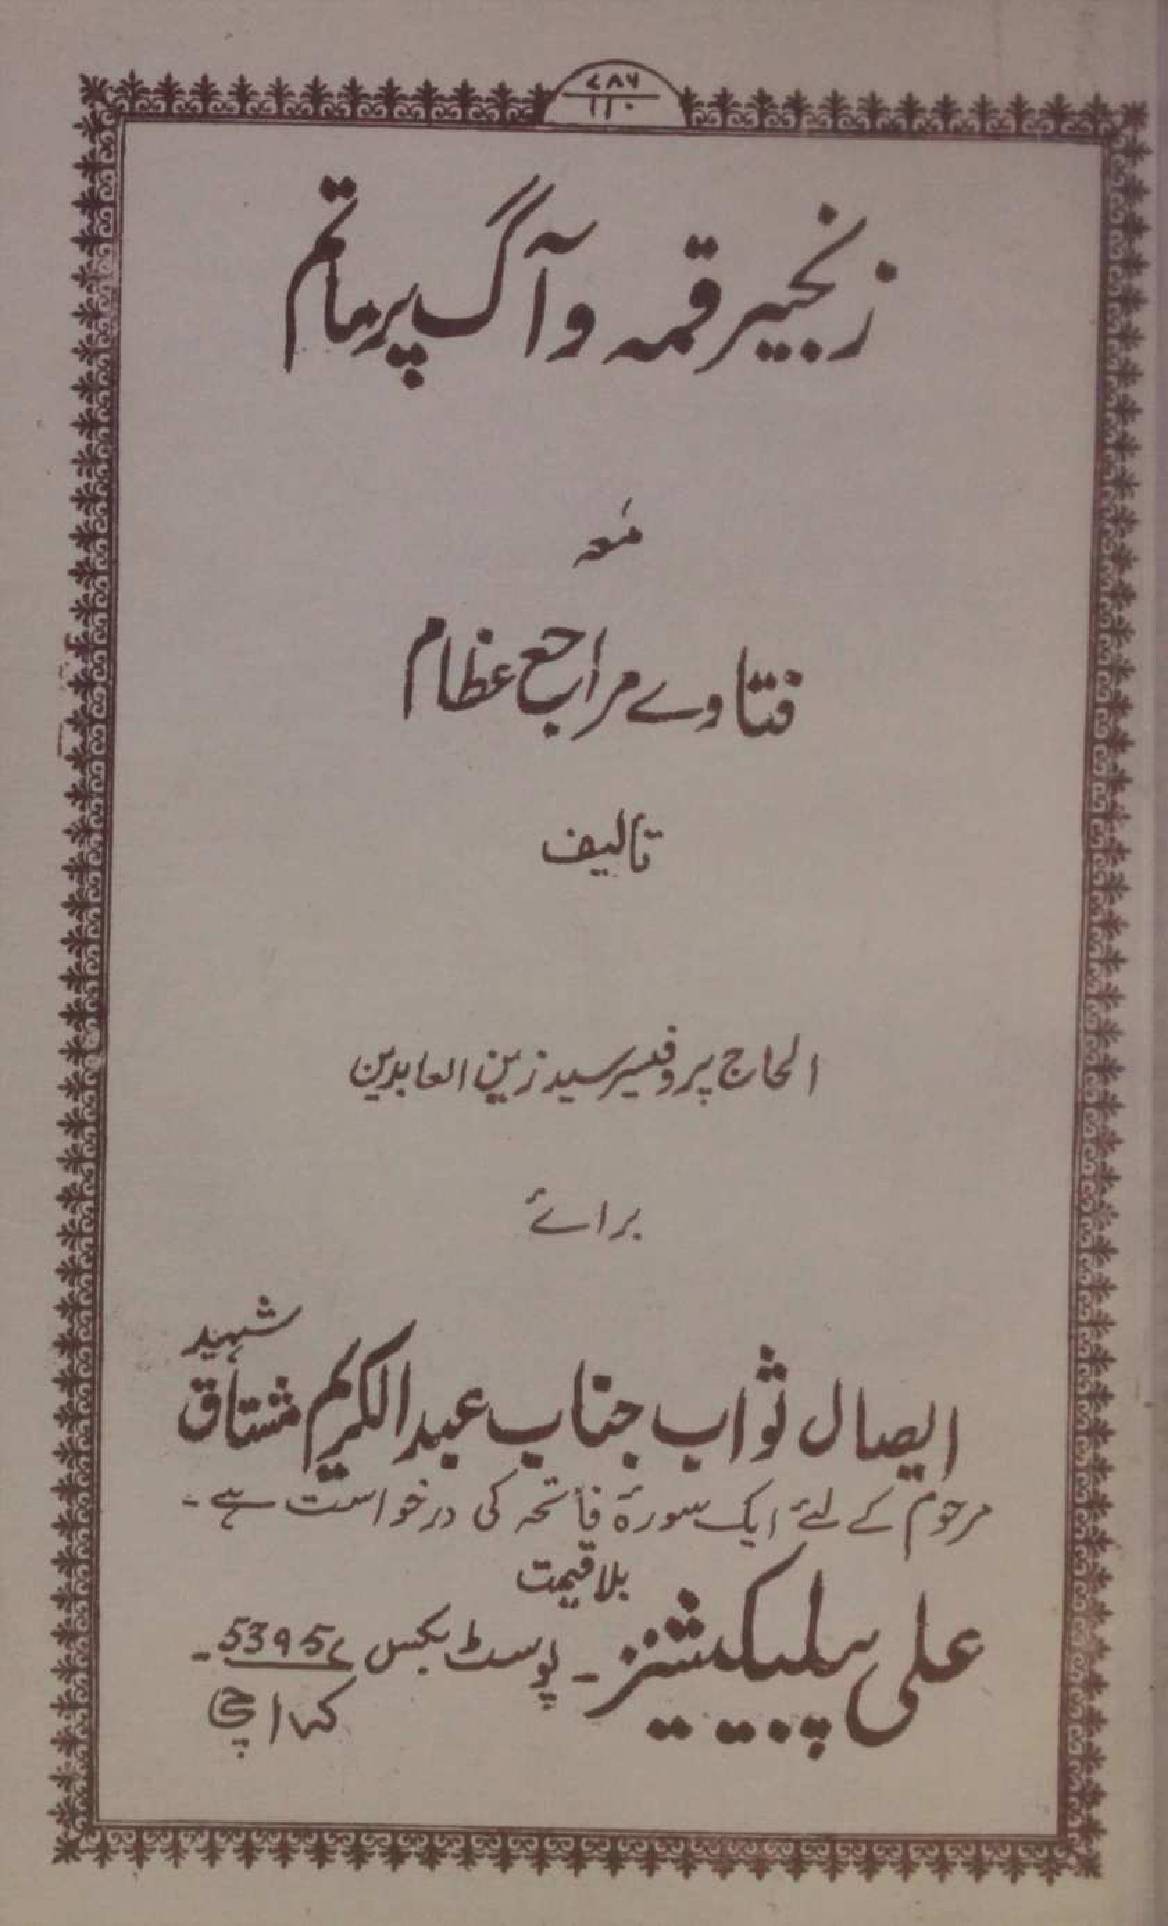 ۷۸۶
۱۱۰
زنجیر قمہ و آگ پر ماتم
معہ
فتاوے مراجع عظام
تالیف
الحاج پروفیسر سید زین العابدین
برائے
ایصال ثواب جناب عبدالکریم مشتاق شہید
مرحوم کے لئے ایک سورۂ فاتحہ کی درخواست ہے۔
بلا قیمت
علی پبلیکیشنز۔ پوسٹ بکس 5395۔
کراچی